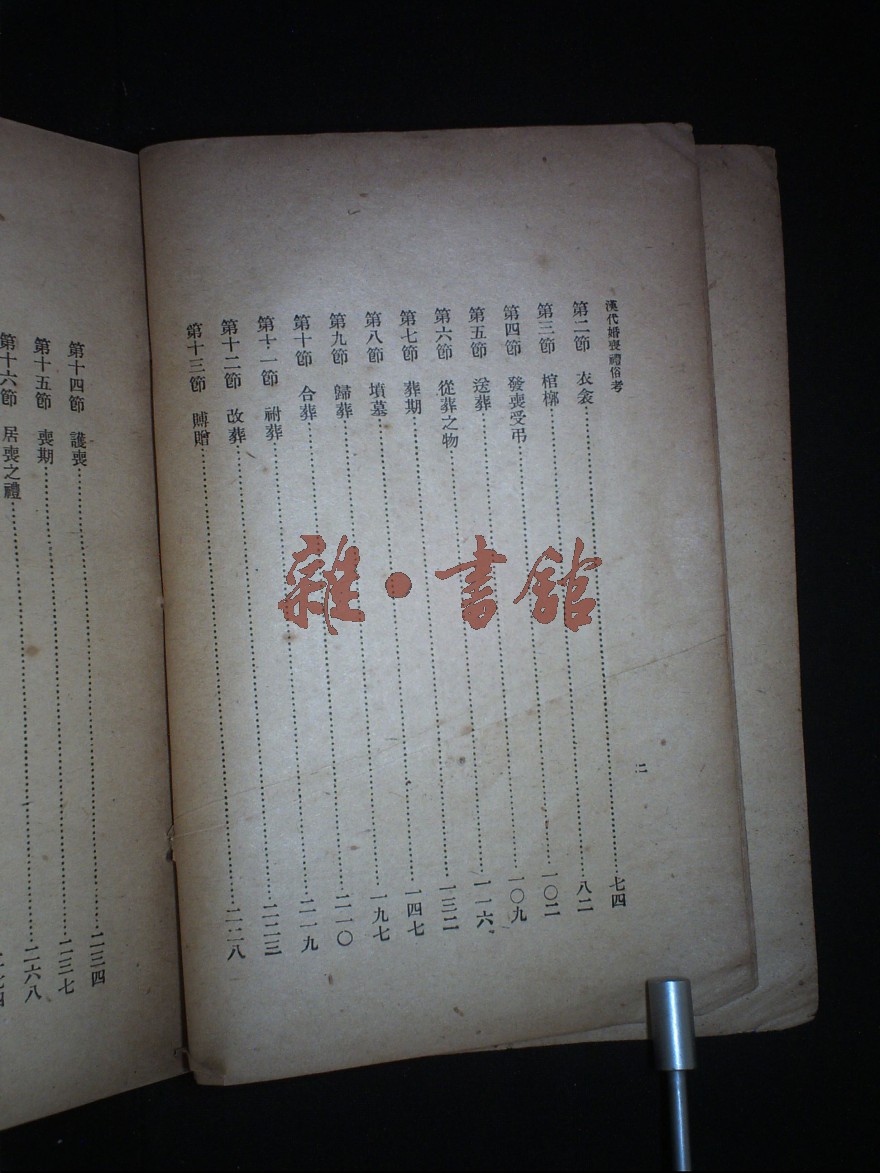 漢代婚喪禮俗考
二
第二節 衣衾……七四
第三節 棺槨……八二
第四節 發喪受弔……一〇二
第五節 送葬……一〇九
第六節 從葬之物……一一六
第七節 葬期……一三二
第八節 墳墓……一四七
第九節 歸葬……一九七
第十節 合葬……二一〇
第十一節 祔葬……二一九
第十二節 改葬……二二三
第十三節 賻贈……二二八
第十四節 護喪……二三四
第十五節 喪期……二三七
第十六節 居喪之禮……二六八
雜·書館